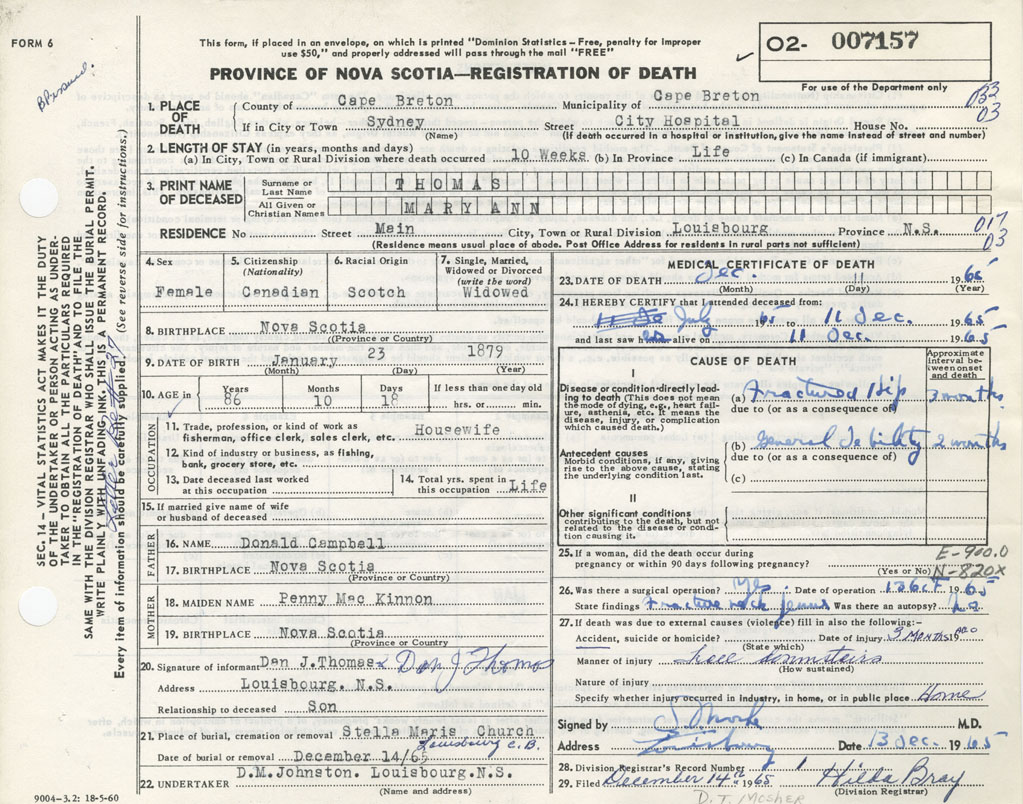 FORM 6
This form, if placed in an envelope, on which is printed "Dominion Statistics – Free, penalty for improper
use $50," and properly addressed will pass through the mail "FREE"
02- 007157
For use of the Department only
PROVINCE OF NOVA SCOTIA—REGISTRATION OF DEATH
1. PLACE OF DEATH
County of Cape Breton Municipality of Cape Breton
033
03
If in City or Town Sydney Street City Hospital House No.
(Name) (If death occurred in a hospital or institution, give the name instead of street and number)
2. LENGTH OF STAY (in years, months and days)
(a) In City, Town or Rural Division where death occurred 10 Weeks (b) In Province Life (c) In Canada (if immigrant)
3. PRINT NAME OF DECEASED
Surname or Last Name THOMAS
All Given or Christian Names MARY ANN
RESIDENCE No Street Main City, Town or Rural Division Louisbourg Province N.S.
017
03
(Residence means usual place of abode. Post Office Address for residents in rural parts not sufficient)
4. Sex Female
5. Citizenship (Nationality) Canadian
6. Racial Origin Scotch
7. Single, Married, Widowed or Divorced (write the word) Widowed
8. BIRTHPLACE Nova Scotia
(Province or Country)
9. DATE OF BIRTH January 23 1879
(Month) (Day) (Year)
10. AGE in Years 86 Months 10 Days 18 If less than one day old hrs. or min.
OCCUPATION
11. Trade, profession, or kind of work as
fisherman, office clerk, sales clerk, etc. Housewife
12. Kind of industry or business, as fishing,
bank, grocery store, etc.
13. Date deceased last worked
at this occupation
14. Total yrs. spent in
this occupation Life
15. If married give name of wife
or husband of deceased
FATHER
16. NAME Donald Campbell
17. BIRTHPLACE Nova Scotia
(Province or Country)
MOTHER
18. MAIDEN NAME Penny Mac Kinnon
19. BIRTHPLACE Nova Scotia
(Province or Country)
20. Signature of informant Dan J.Thomas Dan J Thomas
Address Louisbourg, N.S.
Relationship to deceased Son
21. Place of burial, cremation or removal Stella Maris Church
Louisbourg C.B.
Date of burial or removal December 14/65
22. UNDERTAKER D.M.Johnston. Louisbourg.N.S.
(Name and address)
9004-3.2: 18-5-60
MEDICAL CERTIFICATE OF DEATH
23. DATE OF DEATH Dec. 11 1965
(Month) (Day) (Year)
24. I HEREBY CERTIFY that I attended deceased from:
July 1965 to 11 Dec. 1965
and last saw h alive on 11 Dec. 1965
CAUSE OF DEATH
Approximate interval between onset and death
I
Disease or condition directly leading to death (This does not mean the mode of dying, e.g., heart failure, asthenia, etc. It means the disease, injury, or complication which caused death.)
(a) Fractured Hip 3 months
due to (or as a consequence of)
Antecedent causes
Morbid conditions, if any, giving rise to the above cause, stating the underlying condition last.
(b) General debility 2 months
due to (or as a consequence of)
(c)
II
Other significant conditions
contributing to the death, but not related to the disease or condition causing it.
25. If a woman, did the death occur during
pregnancy or within 90 days following pregnancy?
(Yes or No)
E-900.0
N-820X
26. Was there a surgical operation? Yes. Date of operation 13 Oct 1965
State findings Fracture neck femur Was there an autopsy? no
27. If death was due to external causes (violence) fill in also the following:–
Accident, suicide or homicide? Date of injury 3 MONTHS AGO 19
(State which)
Manner of injury Fell downstairs
(How sustained)
Nature of injury
Specify whether injury occurred in industry, in home, or in public place Home
Signed by M.D.
Address Louisbourg Date 13 Dec. 1965
28. Division Registrar's Record Number 1
29. Filed December 14th 1965 Hilda Bray
(Division Registrar)
D.T. MOSHER
SEC. 14 – VITAL STATISTICS ACT MAKES IT THE DUTY
OF THE UNDERTAKER OR PERSON ACTING AS UNDER-
TAKER TO OBTAIN ALL THE PARTICULARS REQUIRED
IN THE "REGISTRATION OF DEATH" AND TO FILE THE
SAME WITH THE DIVISION REGISTRAR WHO SHALL ISSUE THE BURIAL PERMIT.
WRITE PLAINLY WITH UNFADING INK. THIS IS A PERMANENT RECORD.
Every item of information should be carefully supplied. (See reverse side for instructions.)